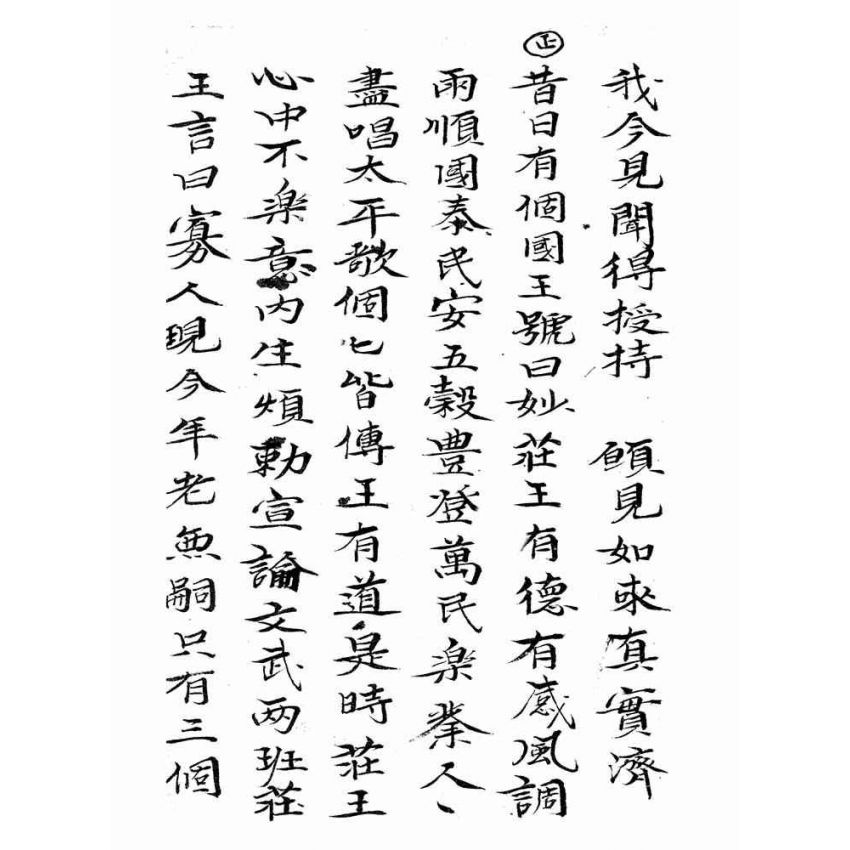 我今見聞得授持　願見如來真實濟
㊣
昔日有個國王號曰妙莊王有德有感風調
雨順國泰民安五穀豊登萬民楽業人〻
盡唱太平歌個匕皆傳王有道是時莊王
心中不楽意內生煩勅宣論文武两班莊
王言曰寡人現今年老無嗣只有三個